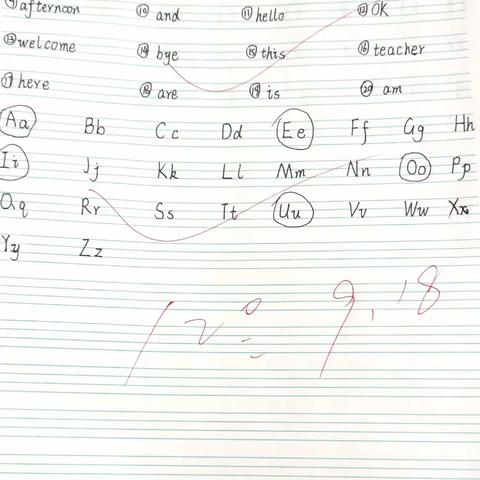 ⑨afternoon ⑩and ⑪hello ⑫OK
⑬welcome ⑭bye ⑮this ⑯teacher
⑰here ⑱are ⑲is ⑳am
Aa Bb Cc Dd Ee Ff Gg Hh
Ii Jj Kk Ll Mm Nn Oo Pp
Qq Rr Ss Tt Uu Vv Ww Xx
Yy Zz
9.18